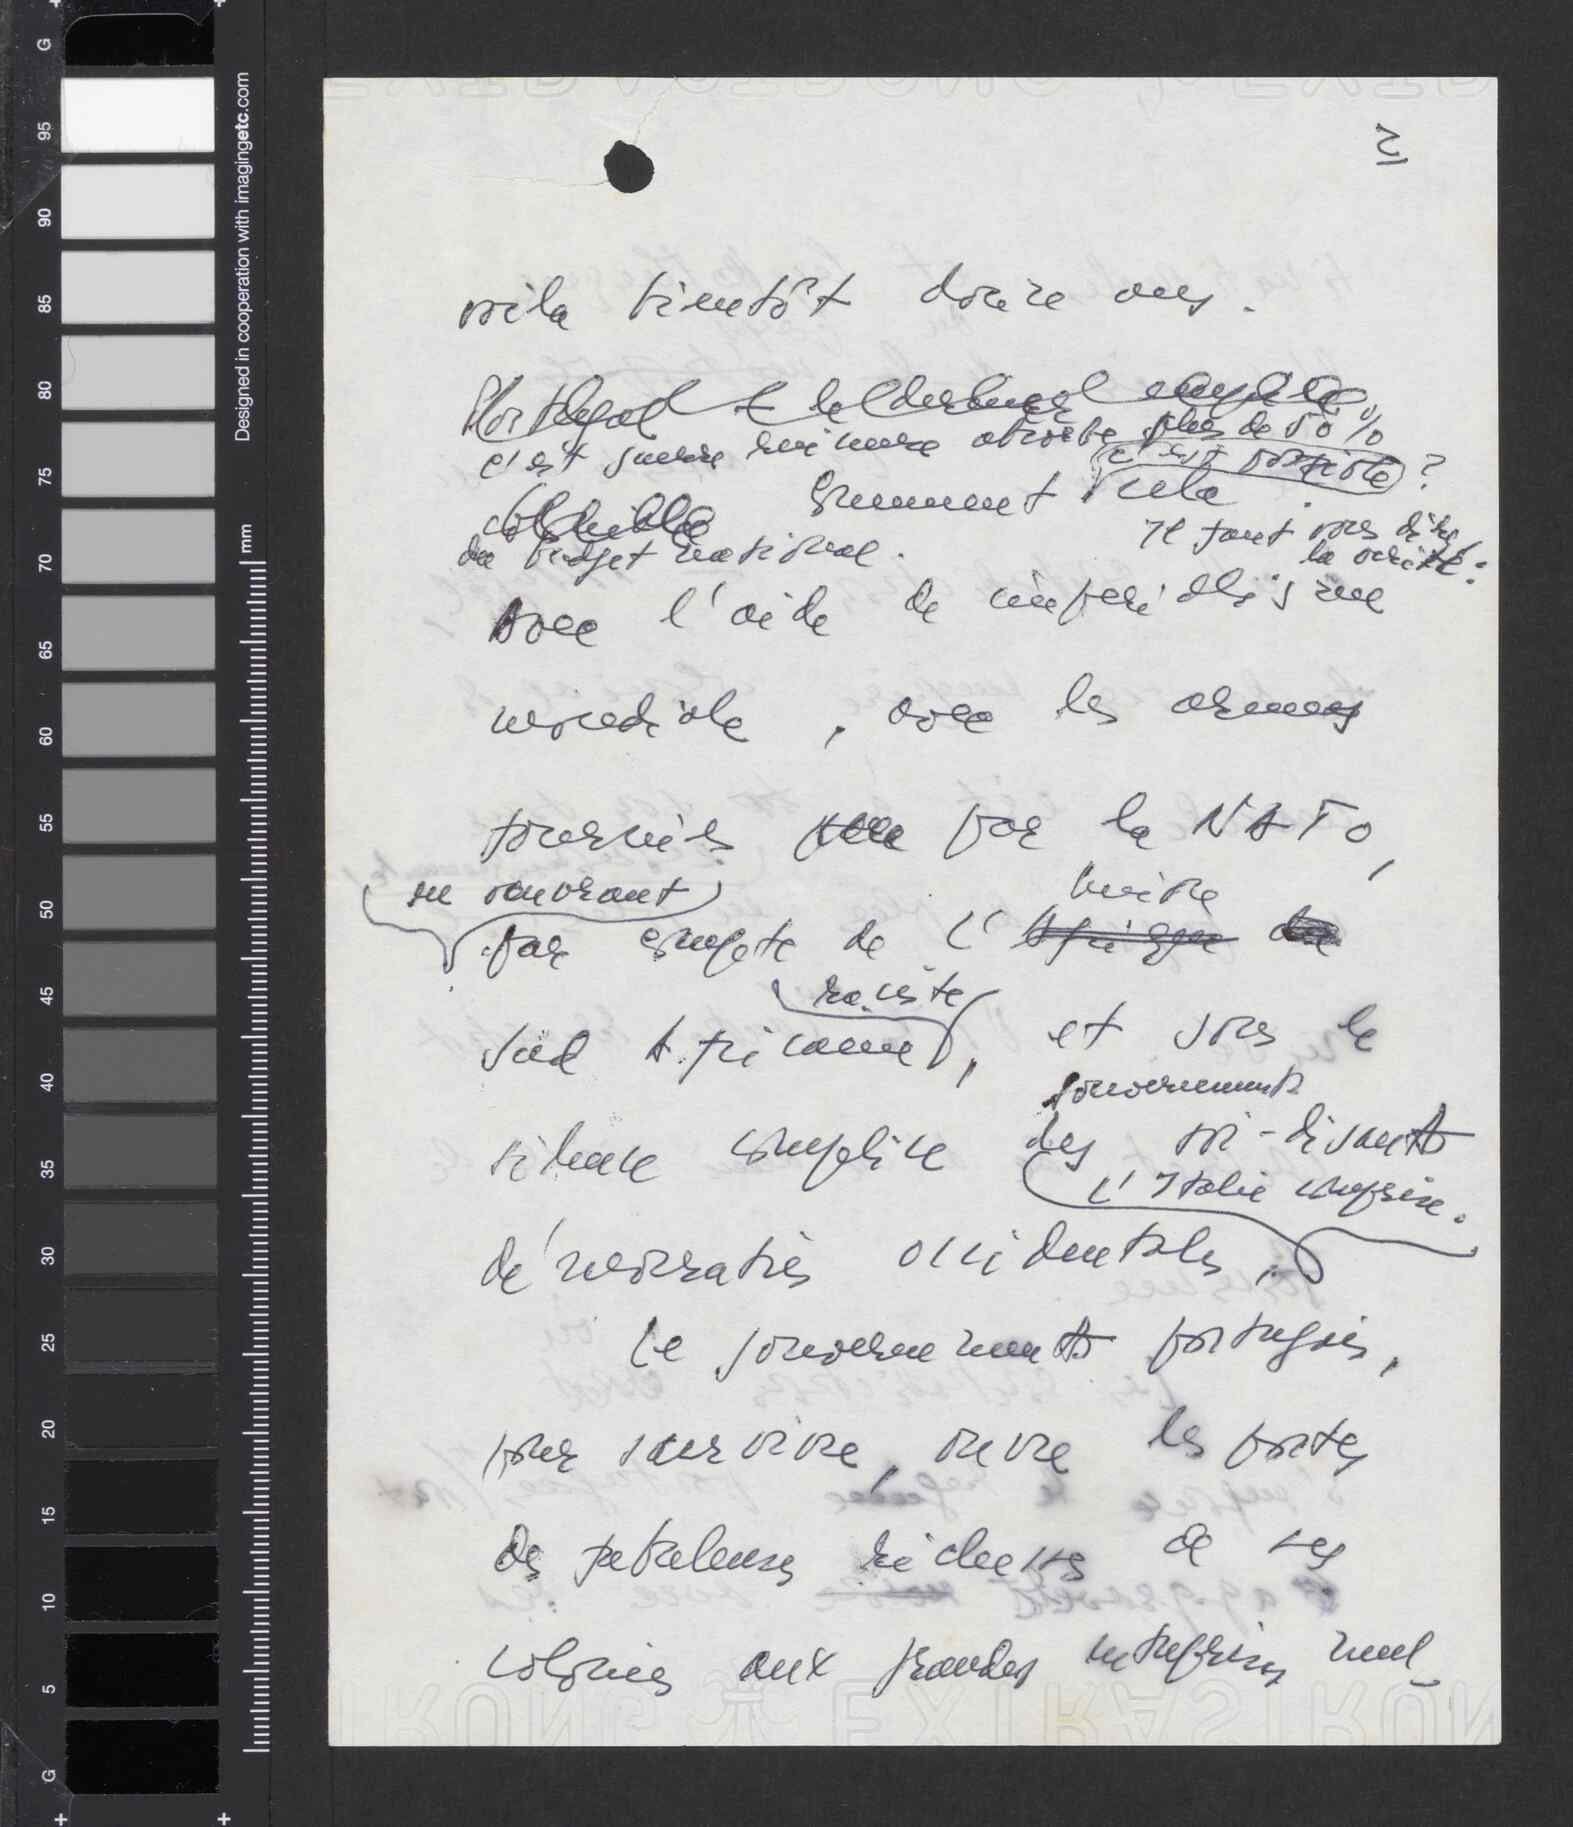 2
voila bientôt douze ans.
Portugal
c'est guerre absorbe plus de 50%
c'est possible ?
Comment cela
du budget national.
Il faut vous dire
la vérité:
Avec l'aide de impérialisme
mondiale, avec les armes
fournies par la NATO,
en couvrant
par compte de l' Afrique
raciste
Sud Africaine, et sous le
gouvernements
silence complice des soi-disants
l'Italie comprise.
démocraties occidentales.
Le gouvernement portugais,
pour survivre, ouvre les portes
des fabuleuses richesses de ses
colonies aux grandes entreprises mul-
EXTRA STRONG
G
95
90
85
80
75
70
65
60
55
50
45
40
35
30
25
20
15
10
5
G
Designed in cooperation with imagingetc.com
mm